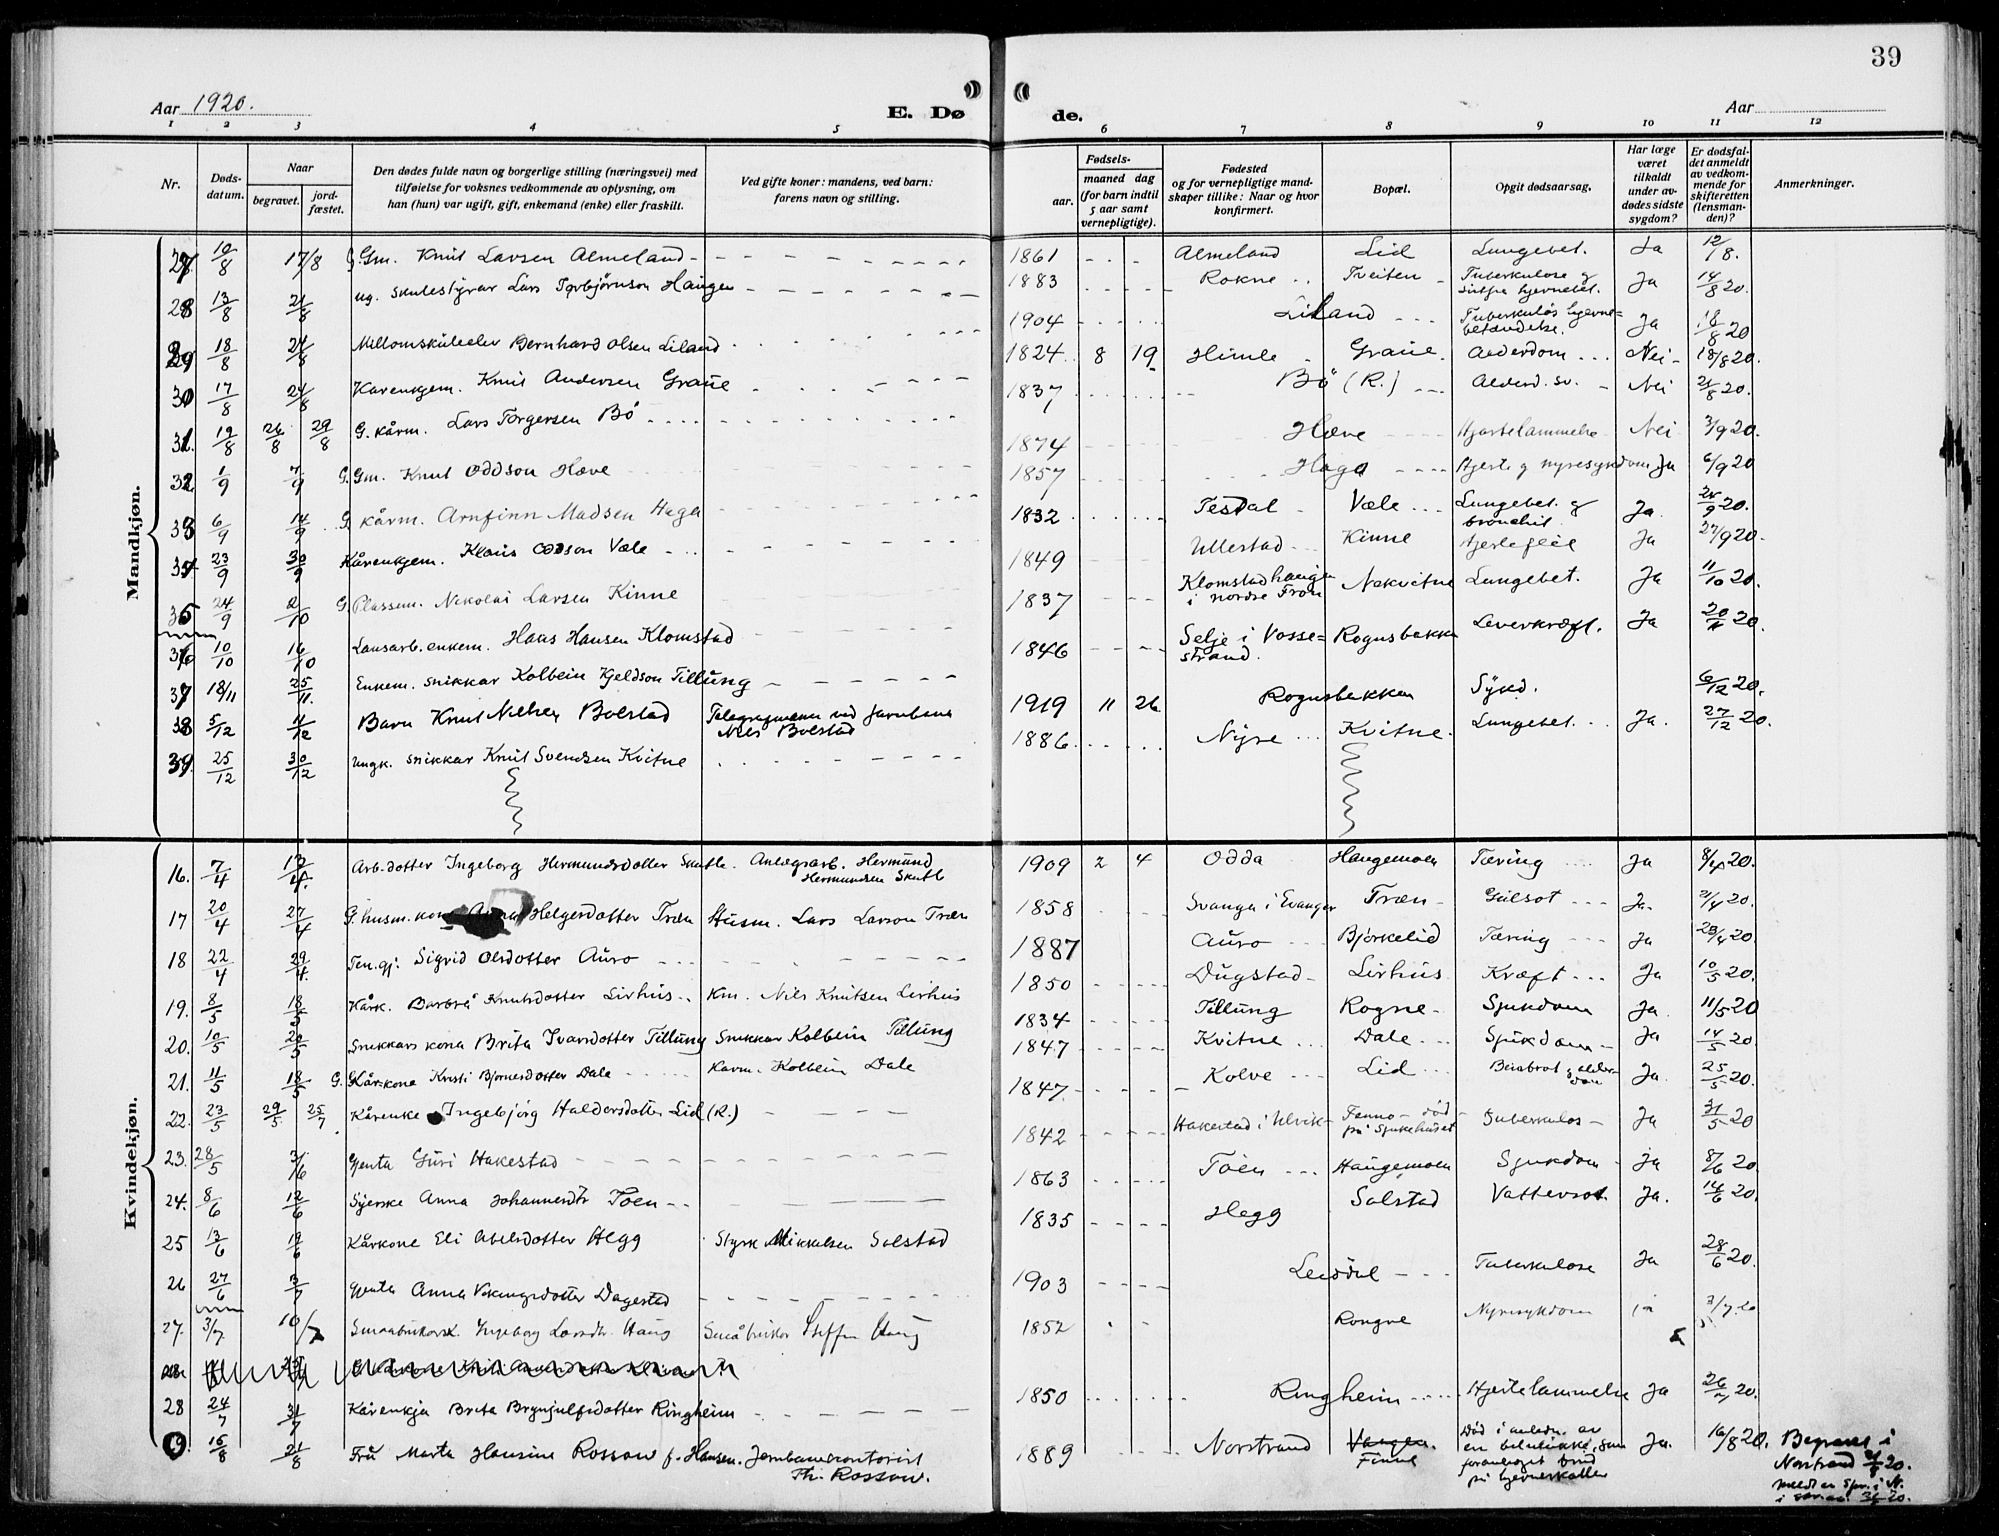 39
Aar 1920.
E. Dø
de.
Aar
1 2 3 4 5 6 7 8 9 10 11 12
Nr.
Døds-
datum.
Naar
begravet.
jord-
fæstet.
Den dødes fulde navn og borgerlige stilling (næringsvei) med
tilføielse for voksnes vedkommende av oplysning, om
han (hun) var ugift, gift, enkemand (enke) eller fraskilt.
Ved gifte koner: mandens, ved barn:
farens navn og stilling.
Fødsels-
aar.
maaned dag
(for barn indtil
5 aar samt
vernepligtige).
Fødested
og for vernepligtige mand-
skaper tillike: Naar og hvor
konfirmert.
Bopæl.
Opgit dødsaarsag.
Har læge
været
tilkaldt
under av-
dødes sidste
sygdom?
Er dødsfal-
det anmeldt
av vedkom-
mende for
skifteretten
(lensman-
den)?
Anmerkninger.
Mandkjøn.
27 10/8 17/8 G Gm. Knut Larsen Almeland 1861 Almeland Lid Lungebet. Ja 12/8.
28 13/8 21/8 ug. skulestyrar Lars Torbjørnson Haugen 1883 Rokne Tveiten Tuberkulose g Ja 14/8 20.
29 18/8 24/8 Millomskuleelev Bernhard Olsen Liland 1904 Liland Tuberkuløs hjerne-
betændelse. Ja 18/8 20
30 17/8 24/8 Kårenkjem. Knut Andersen Graue 1824 8 19 Himle Graue Alderdom Nei 18/8 20.
31 19/8 26/8 29/8 G. kårm. Lars Torgersen Bø 1837 Bø (R.) Alderd. sv. Nei 21/8 20.
32 1/9 7/9 G. Gm. Knut Oddson Hæve 1874 Hæve Hjertelammelse Nei 3/9 20.
33 6/9 14/9 G kårm. Arnfinn Madsen Haga 1857 Haga Hjerte g nyresykdom Ja 6/9 20
34 23/9 30/9 Kårenkjem. Klaus Oddson Væle 1832 Tesdal Væle Lungebet. g
bronchit. Ja 25/9 20.
35 24/9 2/10 G Plassm. Nikolai Larsen Kinne 1849 Ullestad Kinne Hjertefeil Ja 27/9 20.
36 10/10 16/10 Lausarb. enkem. Hans Hansen Klomstad 1837 Klomstadhaugen
i nordre Fron Nekvitne Lungebet. Ja 11/10 20.
37 18/11 25/11 Enkem. snikkar Kolbein Kjeldson Tillung 1846 Selje i Vosse-
strand. Rognsbakken Leverkræft. Ja 20/11 20.
38 5/12 11/12 Barn Knut Nilsen Bolstad Telegrafmann ved Jarnbana
Nils Bolstad 1919 11 26 Rognsbakken Sykd. 6/12 20.
39. 25/12 30/12 Ungk. snikkar Knut Svendsen Kvitne 1886 Nyre Kvitne Lungebet. Ja. 27/12 20.
Kvindekjøn.
16. 7/4 17/4. Arb. dotter Ingeborg Hermundsdotter Skutle. Anlegsarb. Hermund
Hermundsen Skutle 1909 2 4 Odda Haugamoen Tæring Ja 8/4 20.
17 20/4 27/4 G. husm. kona Helgesdotter Træn Husm. Lars Larson Træn 1858 Svanga i Evanger Træn Gulsot Ja. 21/4 20.
18 22/4 29/4. Ten. gj. Sigrid Olsdotter Auro 1887 Auro Bjørkelid Tæring Ja 23/4 20.
19. 8/5 18/5 Kårk. Barbrå Knutsdotter Lirhus Km. Nils Knutsen Lirhus 1850 Dugstad Lirhus Kræft Ja 10/5 20.
20. 10/5 20/5 Snikkars kona Brita Ivarsdotter Tillung Snikkar Kolbein Tillung 1834 Tillung Rogne Sjukdom Ja. 11/5 20
21. 11/5 18/5 G. Kårkone Kristi Bjørnesdotter Dale Karm. Kolbein Dale 1847 Kvitne Dale Sjukdom Ja 14/5 20.
22. 23/5 29/5. 25/7 Kårenke Ingebjørg Haldorsdotter Lid (R.) 1847 Kolve Lid Beinbrot g alder-
dom Ja. 25/5 20.
23. 28/5 3/6 Gjenta Guri Hakestad 1842 Hakestad i Ulvik Fenno - død
på Sjukehuset Tuberkulos Ja 31/5 20
24. 8/6 12/6 Syerske Anna Johannesdtr Toen 1863 Toen Haugamoen Sjukdom Ja 8/6 20.
25 13/6 19/6 Kårkone Eli Abelsdotter Hegg Styrk Mikkelsen Solstad 1835 Hegg Solstad Vattersot Ja. 14/6 20.
26 27/6 3/7 Gjenta Anna Vikingsdotter Dagestad 1903 Leidal Tuberkulose Ja 28/6 20.
27. 3/7 10/7 Smaabrukersk. Ingeborg Larsdtr. Haug Småbruker Steffen Haug 1852 Rongve Nyresykdom ja 3/7 20
28 24/7 31/7 Kårenkja Brita Brynjulfsdotter Ringheim 1850 Ringheim Hjertelammelse Ja 26/7 20.
15/8 21/8 Fru Marta Hansine Rossow f. Hansen. Jernbanekontorist
Th. Rossow. 1889 Norstrand Vangen.
Finne Død i anledn. av
en bilulukke, som
foranleiget brud
på hjerneskallen Ja. 16/8 20. Begravet i
Norstrand 21/8 20.